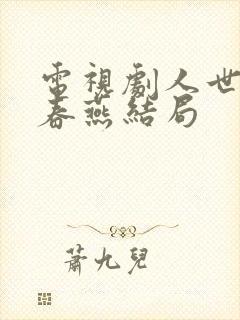 電視劇人世
春燕結局
蕭九兒